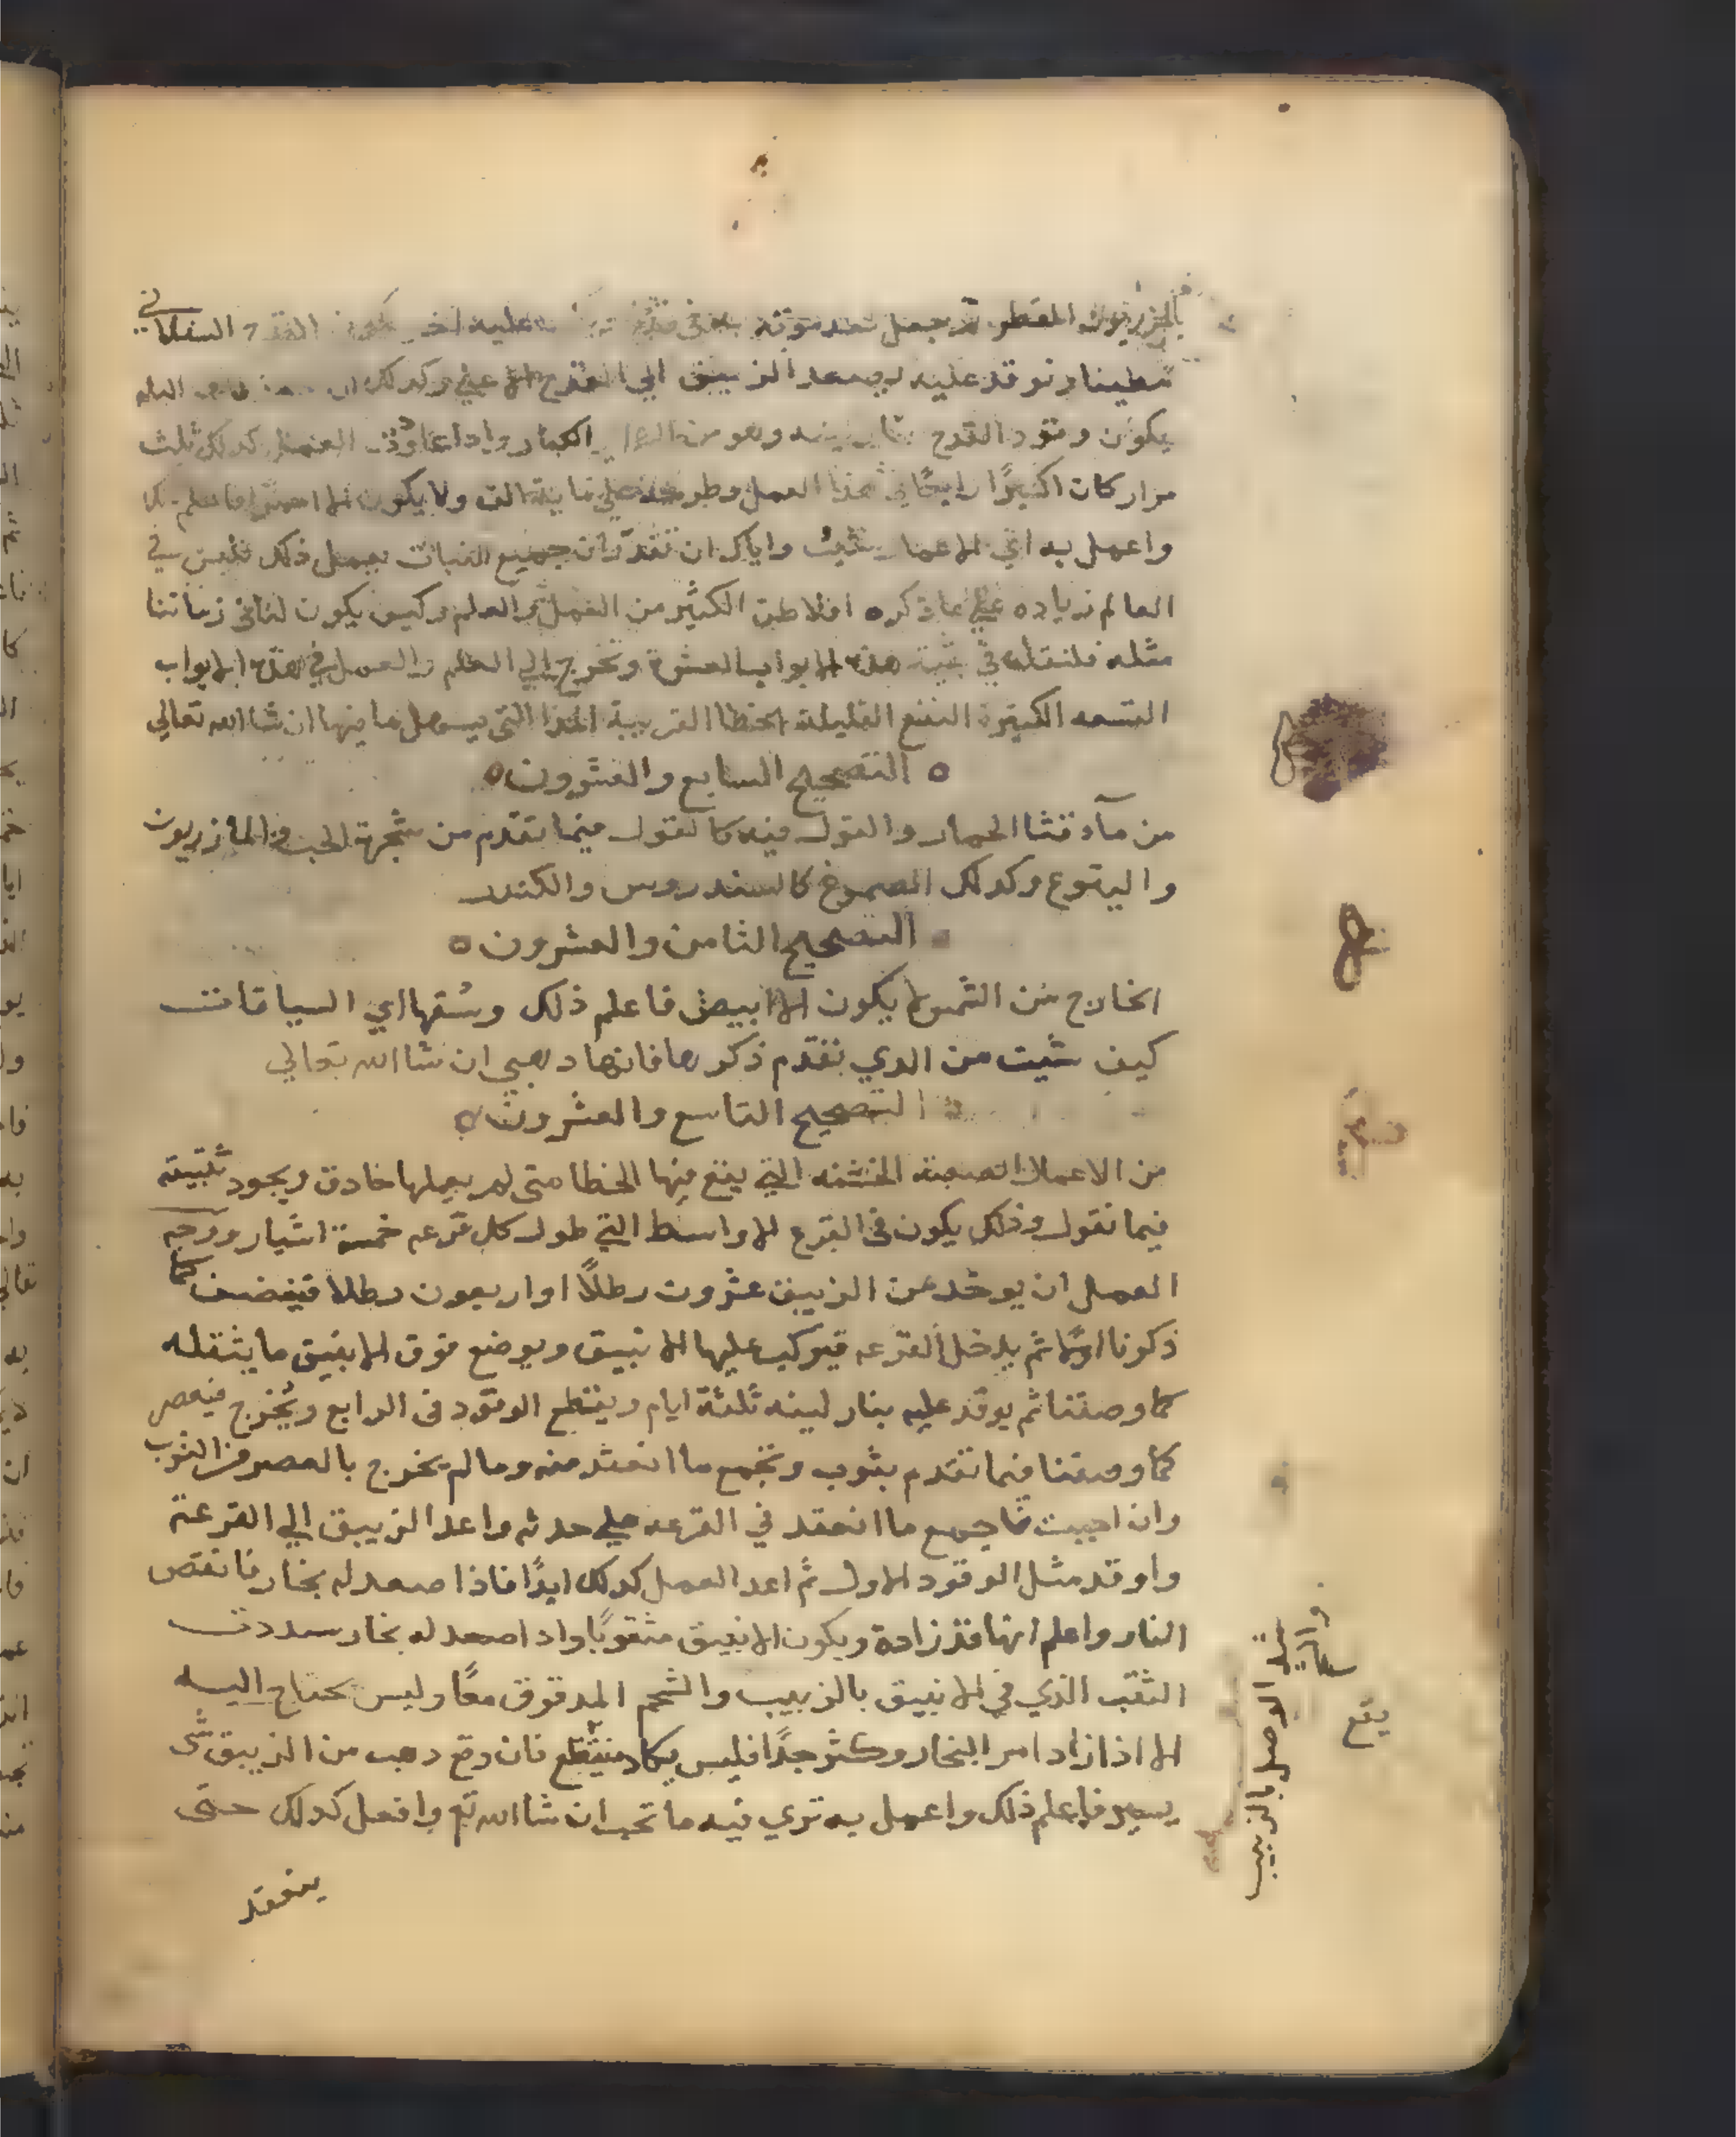 المقطر ثم يجعل بعد فوقه عليه اخر القدح السفلاني
بطين ونوقد عليه ليصعد الزيبق الي القدح الاعلي وكذلك
يكون وقود القدح وهو من الكبار واذا عاودت العمل كذلك ثلث
مرار كان اكسيرًا رابحًا في هذا العمل وطرحه علي ماية الف ولا يكون الا فاعلم ذلك
واعمل به اي الاعمال شيت واياك ان تقدر ان جميع النبات يعمل ذلك فليس في
العالم زياده علي ما ذكره افلاطن الكثير من العمل والعلم وكيف يكون لنا في زماننا
مثله فلنقل في بقية هذه الابواب العشرة ونخرج الي العلم والعمل في هذه الابواب
التسعه الكثيرة النفع القليلة الخطا القريبة الماخذ التي يسهل ما فيها ان شا الله تعالي
ه التصحيح السابع والعشرون ه
من مآ قثا الحمار والقول فيه كالقول فيما تقدم من شجرة الحب والمازريون
واليتوع وكذلك الصموغ كالسندروس والكندر
التصحيح الثامن والعشرون ه
الخارج من الثمن لا يكون الا ابيض فاعلم ذلك وسُقها اي السياقات
كيف شيت من الدي تقدم ذكرها فانها دهبي ان شا الله تعالي
التصحيح التاسع والعشرون ه
من الاعمال الصعبة الخشنه التي يقع فيها الخطا متى لم يعملها حادق ويجود تثبيته
فيما نقول وذلك يكون في القرع الاواسط التي طول كل قرعه خمسة اشبار ووجه
العمل ان يوخد من الزيبق عشرون رطلًا او اربعون رطلا فيغضف كما
ذكرنا اولًا ثم يدخل القرعه فيركب عليها الانبيق ويوضع فوق الانبيق ما يثقله
كما وصفنا ثم يوقد عليه بنار لينه ثلثة ايام ويقطع الوقود في الرابع ويُخرج فيعصر
كما وصفنا فيما تقدم بثوب وتجمع ما انعقد منه وما لم يخرج بالعصر من الثوب
وان احببت فاجمع ما انعقد في القرعه علي حدثه واعد الزيبق الي القرعة
واوقد مثل الوقود الاول ثم اعد العمل كدلك ابدًا فاذا صعد له بخار فانقص
النار واعلم انها قد زادة ويكون الانبيق مثقوبًا واذا صعد له بخار سددت
الثقب الذي في الانبيق بالزبيب والشحم المدقوق معًا وليس يحتاج اليه
الا اذا زاد امر البخار وكثر جدًا فليس يكاد ينقطع فان وقع دهب من الزيبق شى
يسير فاعلم ذلك واعمل به تري فيه ما تحب ان شا الله تع وافعل كدلك حتى
ينعقد
شد الوصل بالزبيب
يقع